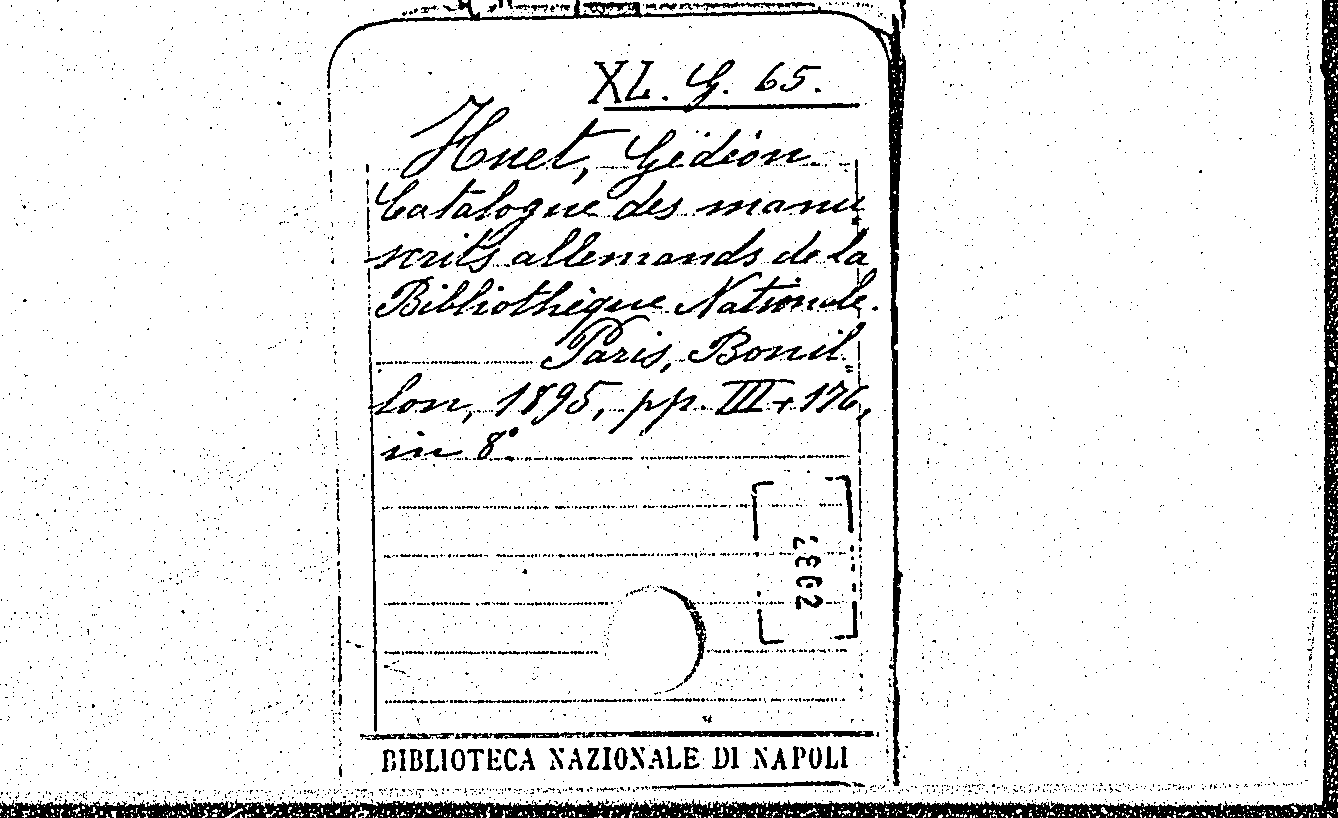 XL. G. 65.
Huet, Gédéon
Catalogue des manu„
scrits allemands de la
Bibliothèque Nationale.
Paris, Bouil„
lon, 1895, pp. III + 176,
in 8°.
BIBLIOTECA NAZIONALE DI NAPOLI